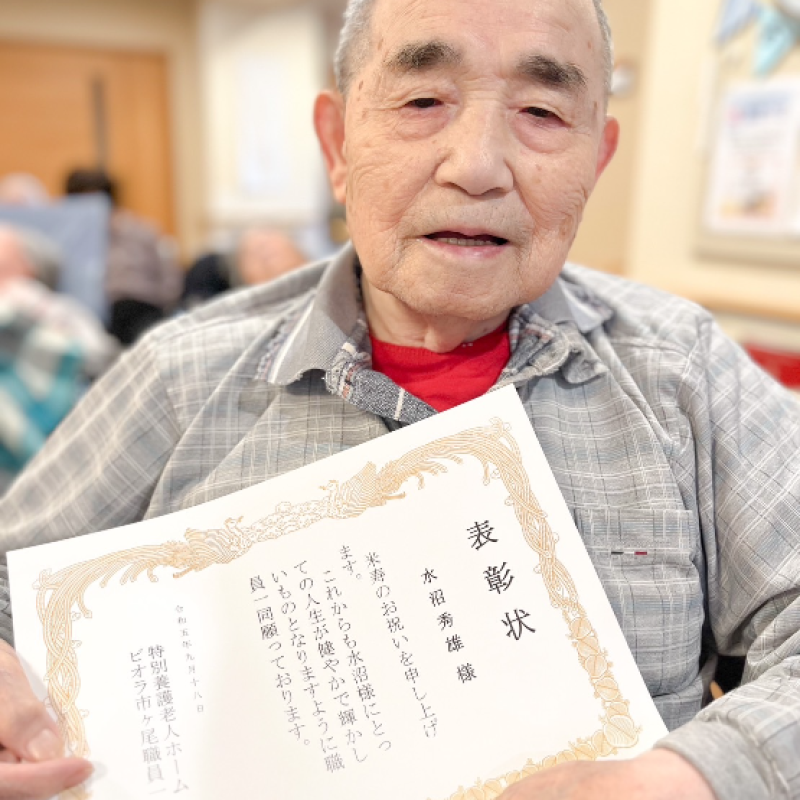 表彰状
水沼秀雄 様
米寿のお祝いを申し上げ
ます。
これからも水沼様にとっ
ての人生が健やかで輝かし
いものとなりますように職
員一同願っております。
令和五年九月十八日
特別養護老人ホーム
ビオラ市ヶ尾職員一